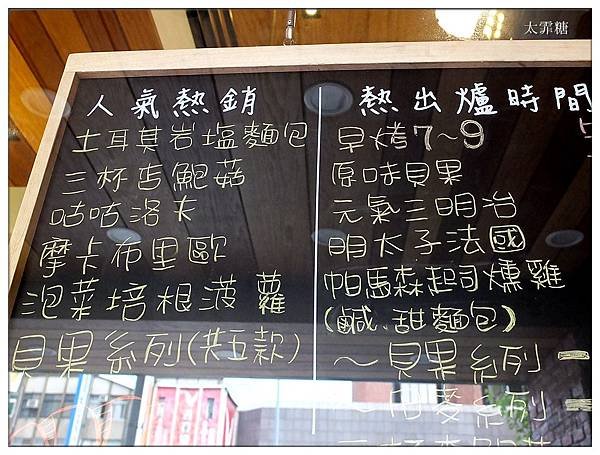 太霏糖
人氣熱銷
土耳其岩塩麵包
三杯杏鮑菇
咕咕洛夫
摩卡布里歐
泡菜培根菠蘿
貝果系列(共五款)
熱出爐時間
早烤7~9
原味貝果
元氣三明治
明太子法國
帕馬森起司燻雞
(鹹、甜麵包)
~貝果系列